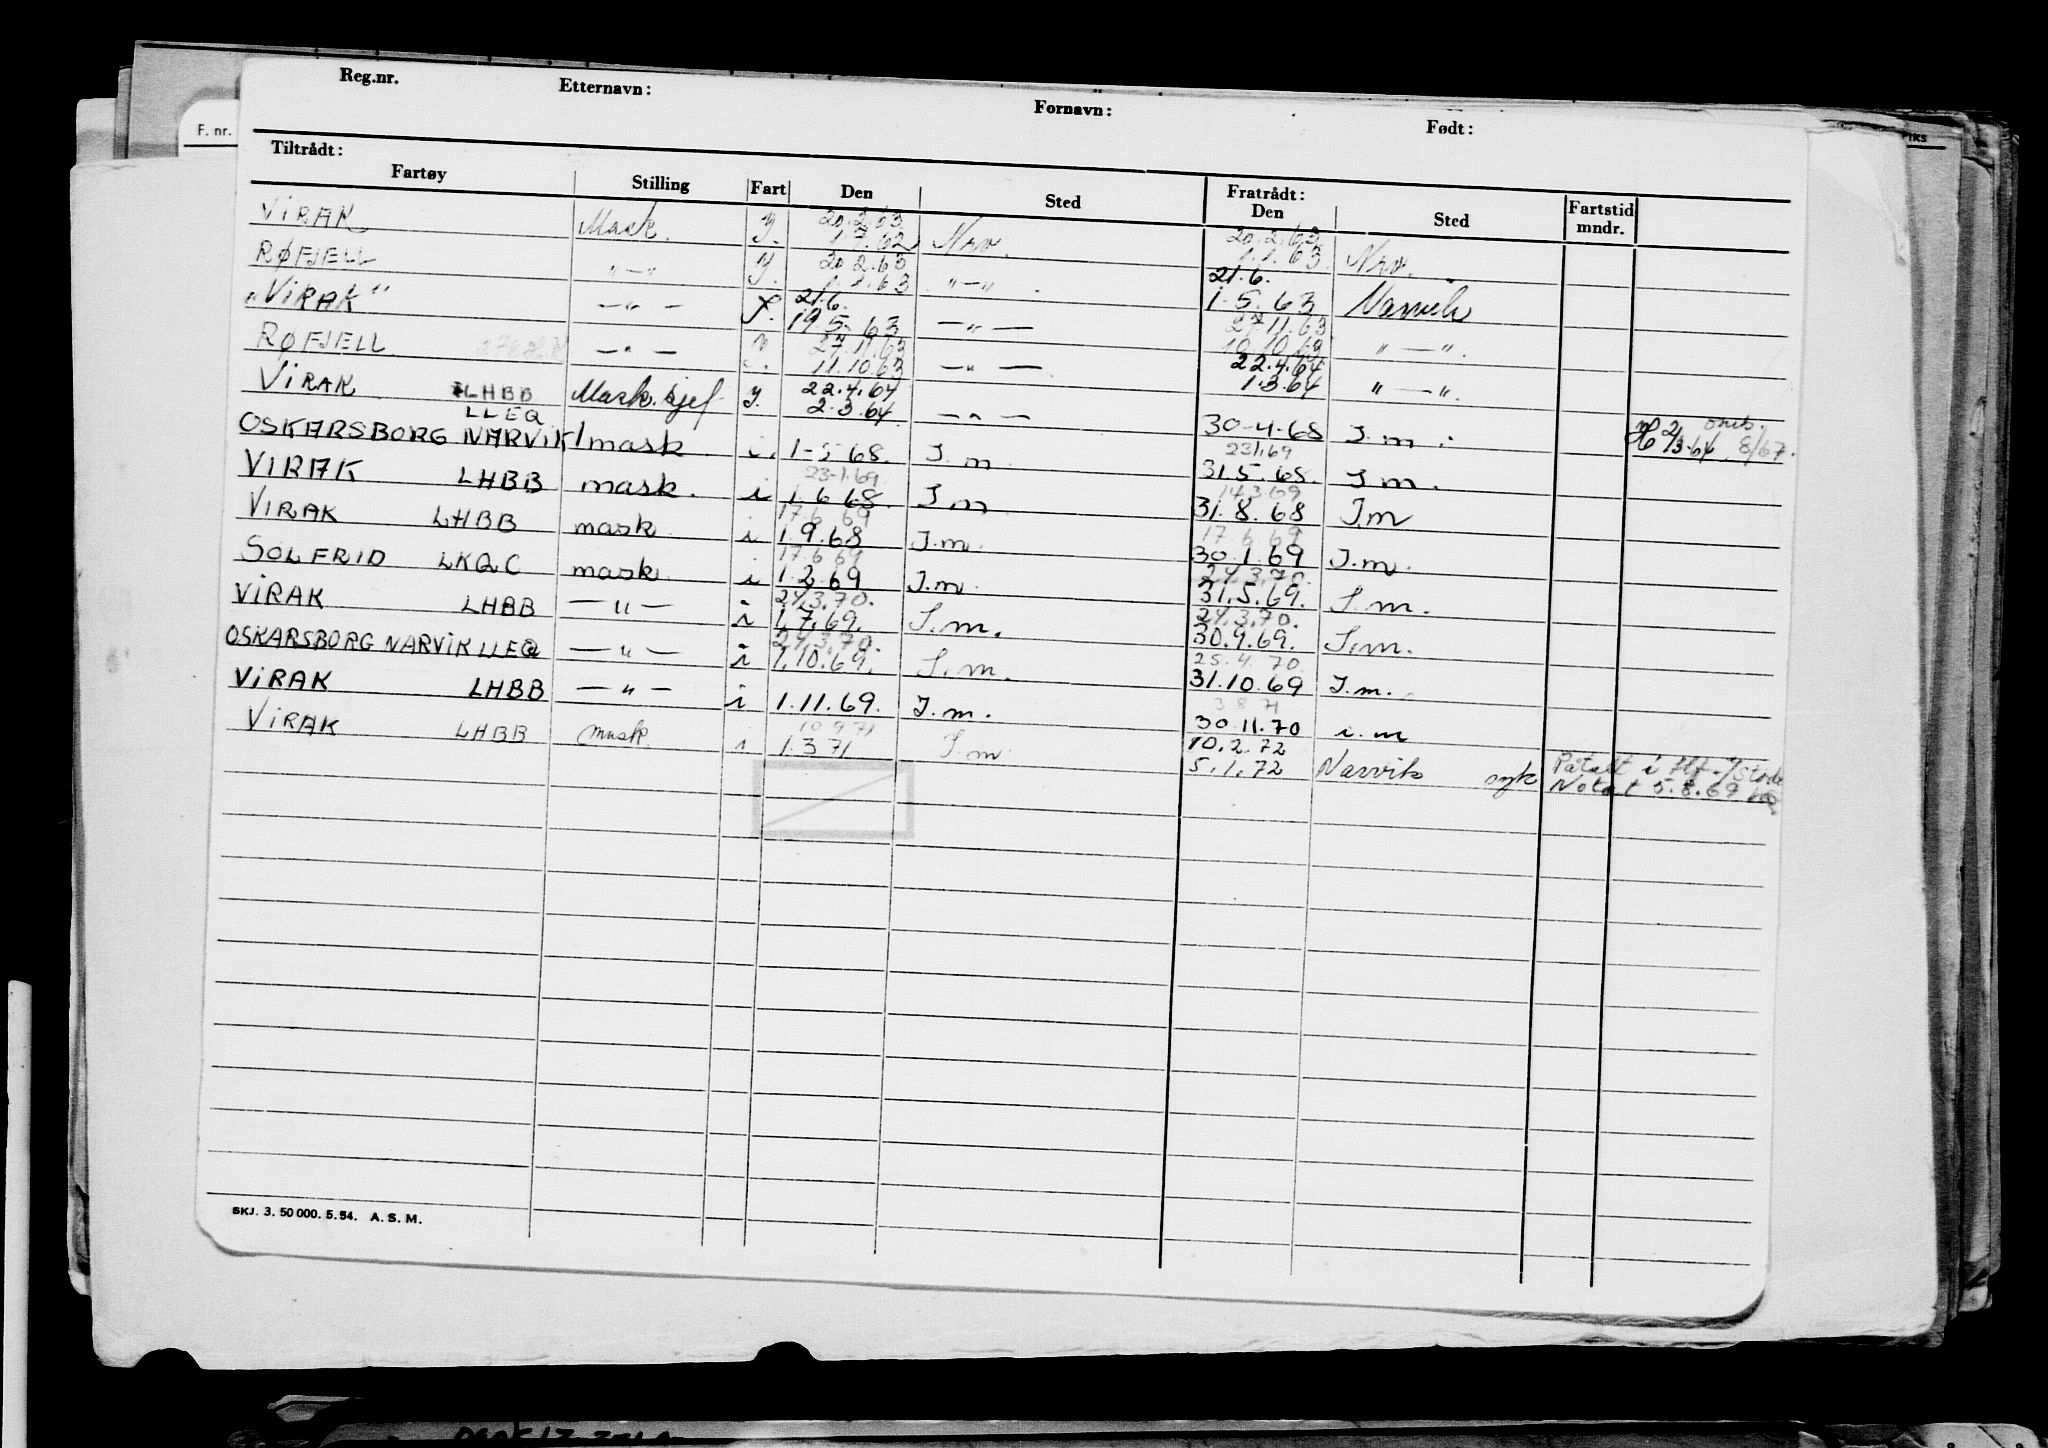 Reg.nr. Etternavn: Fornavn: Født:
F. nr.
Tiltrådt: Fratrådt:
Fartøy Stilling Fart Den Sted Den Sted Fartstid mndr.
20.2.63 20.2.63
VIRAK Mask. 1.7.62 Nrv. 1.1.63 Nrv.
20.2.63 21.6.
RØFJELL "—" 1.1.63 "—" . 1.5.63 Narvik
21.6. 27.11.63
"VIRAK" —"— 19.5.63 —"— 10.10.63 "—".
27.11.63 22.4.64
RØFJELL —"— 11.10.63 —"— 1.3.64 "—".
22.4.64
VIRAK LHBB Mask.sjef 2.3.64 —"— 30-4-68 I.m. 2/3-64 8/67.
LLEQ 23.1.69
OSKARSBORG NARVIK mask i. 1-5-68. I.m 31.5.68. I.m.
23-1.69. 14.3.69
VIRAK LHBB mask. i 1.6.68. I.m 31.8.68 I.m
17.6.69 17.6.69
VIRAK LHBB mask i 1.9.68 I.m. 30.1.69 I.m.
17.6.69 24.3.70.
SOLFRID LKQC mask i 1.2.69 I.m. 31.5.69. I.m.
24.3.70. 24.3.70.
VIRAK LHBB —"— i 1.7.69. I.m. 30.9.69. I.m.
24.3.70. 25.4.70
OSKARSBORG NARVIK LLEQ —"— i 1.10.69. I.m. 31.10.69 I.m.
3.8.71
VIRAK LHBB —"— i 1.11.69. I.m. 30.11.70 i.m
10.9.71 10.2.72
VIRAK LHBB mask i 1.3.71 I.m 5.1.72 Narvik syk Påtalt i
Notat 5.8.69
SKJ. 3. 50 000. 5. 54. A. S. M.